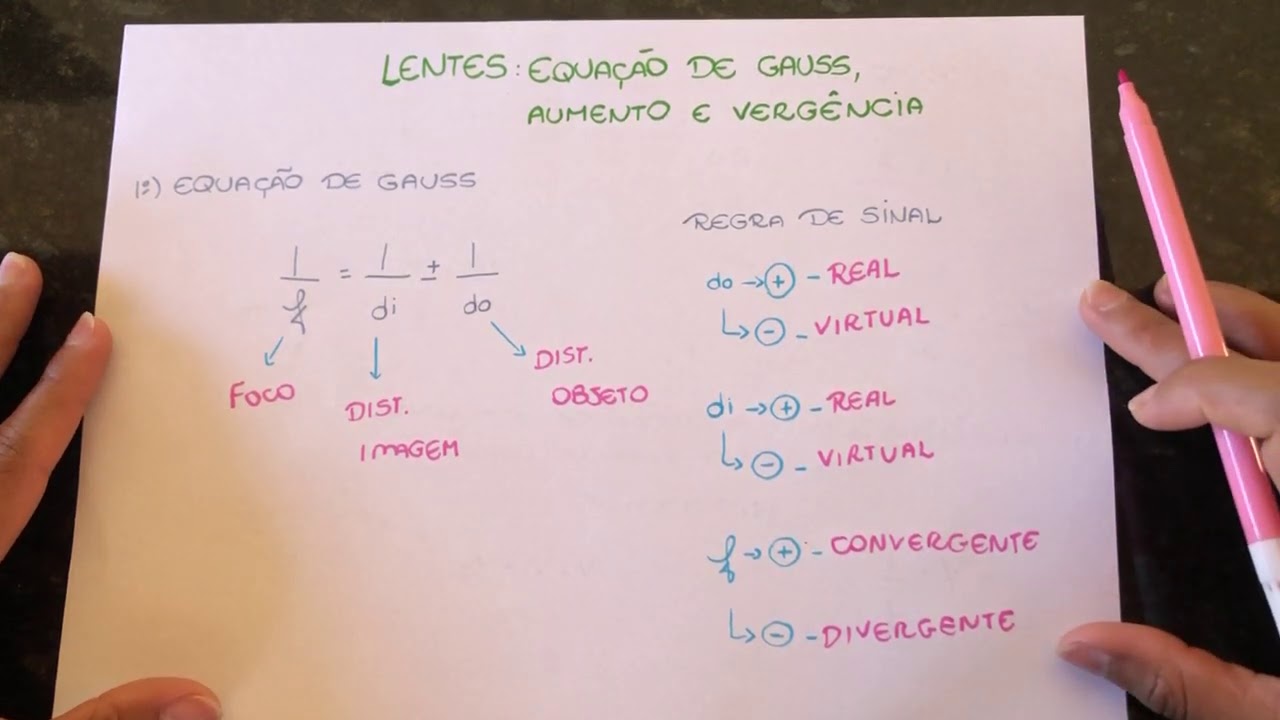 LENTES: EQUAÇÃO DE GAUSS,
AUMENTO E VERGÊNCIA
1º) EQUAÇÃO DE GAUSS
1/f = 1/di ± 1/do
FOCO
DIST.
IMAGEM
DIST.
OBJETO
REGRA DE SINAL
do → + - REAL
↳ - - VIRTUAL
di → + - REAL
↳ - - VIRTUAL
f → + - CONVERGENTE
↳ - - DIVERGENTE